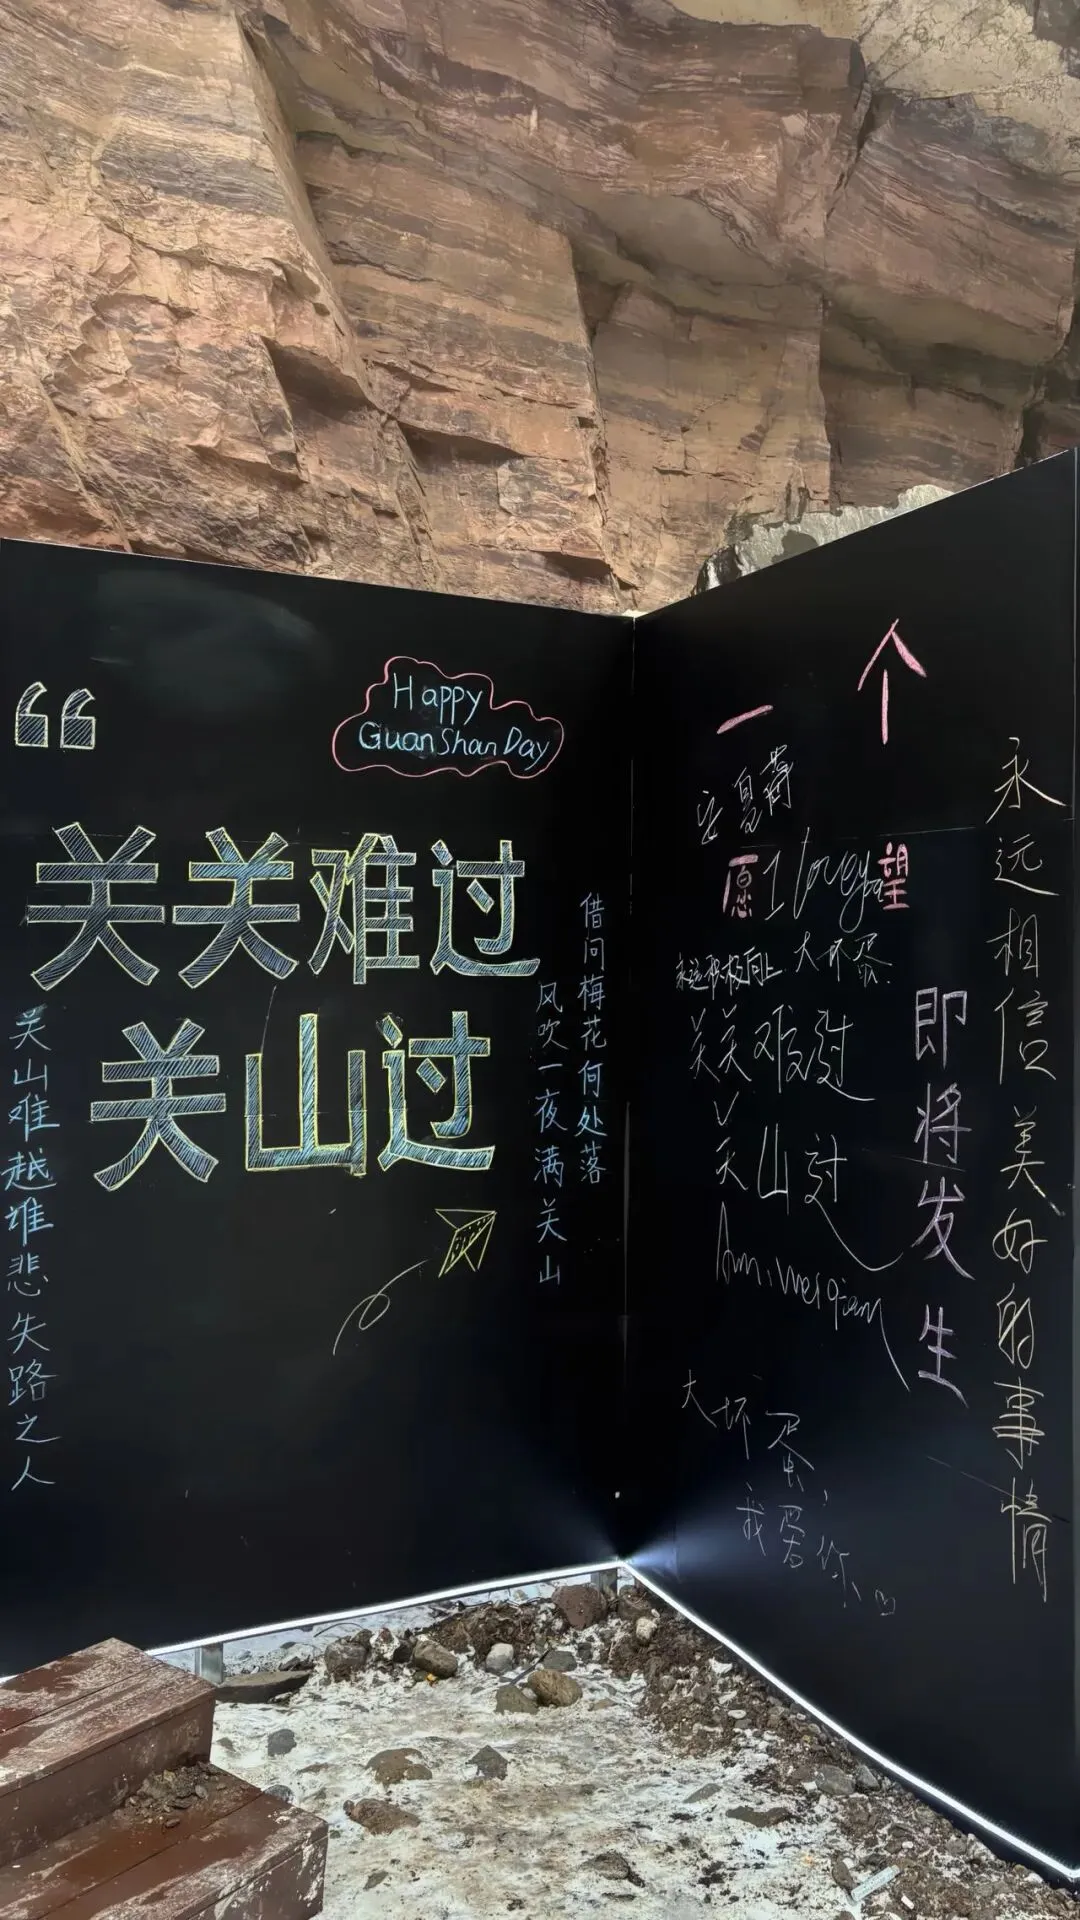 Happy
GuanShanDay
关关难过
关山过
关山难越谁悲失路之人
借问梅花何处落
风吹一夜满关山
一个
愿望
即将发生
I love you
永远积极向上
大坏蛋
关关难过
关山过
大坏蛋
永远相信美好的事情